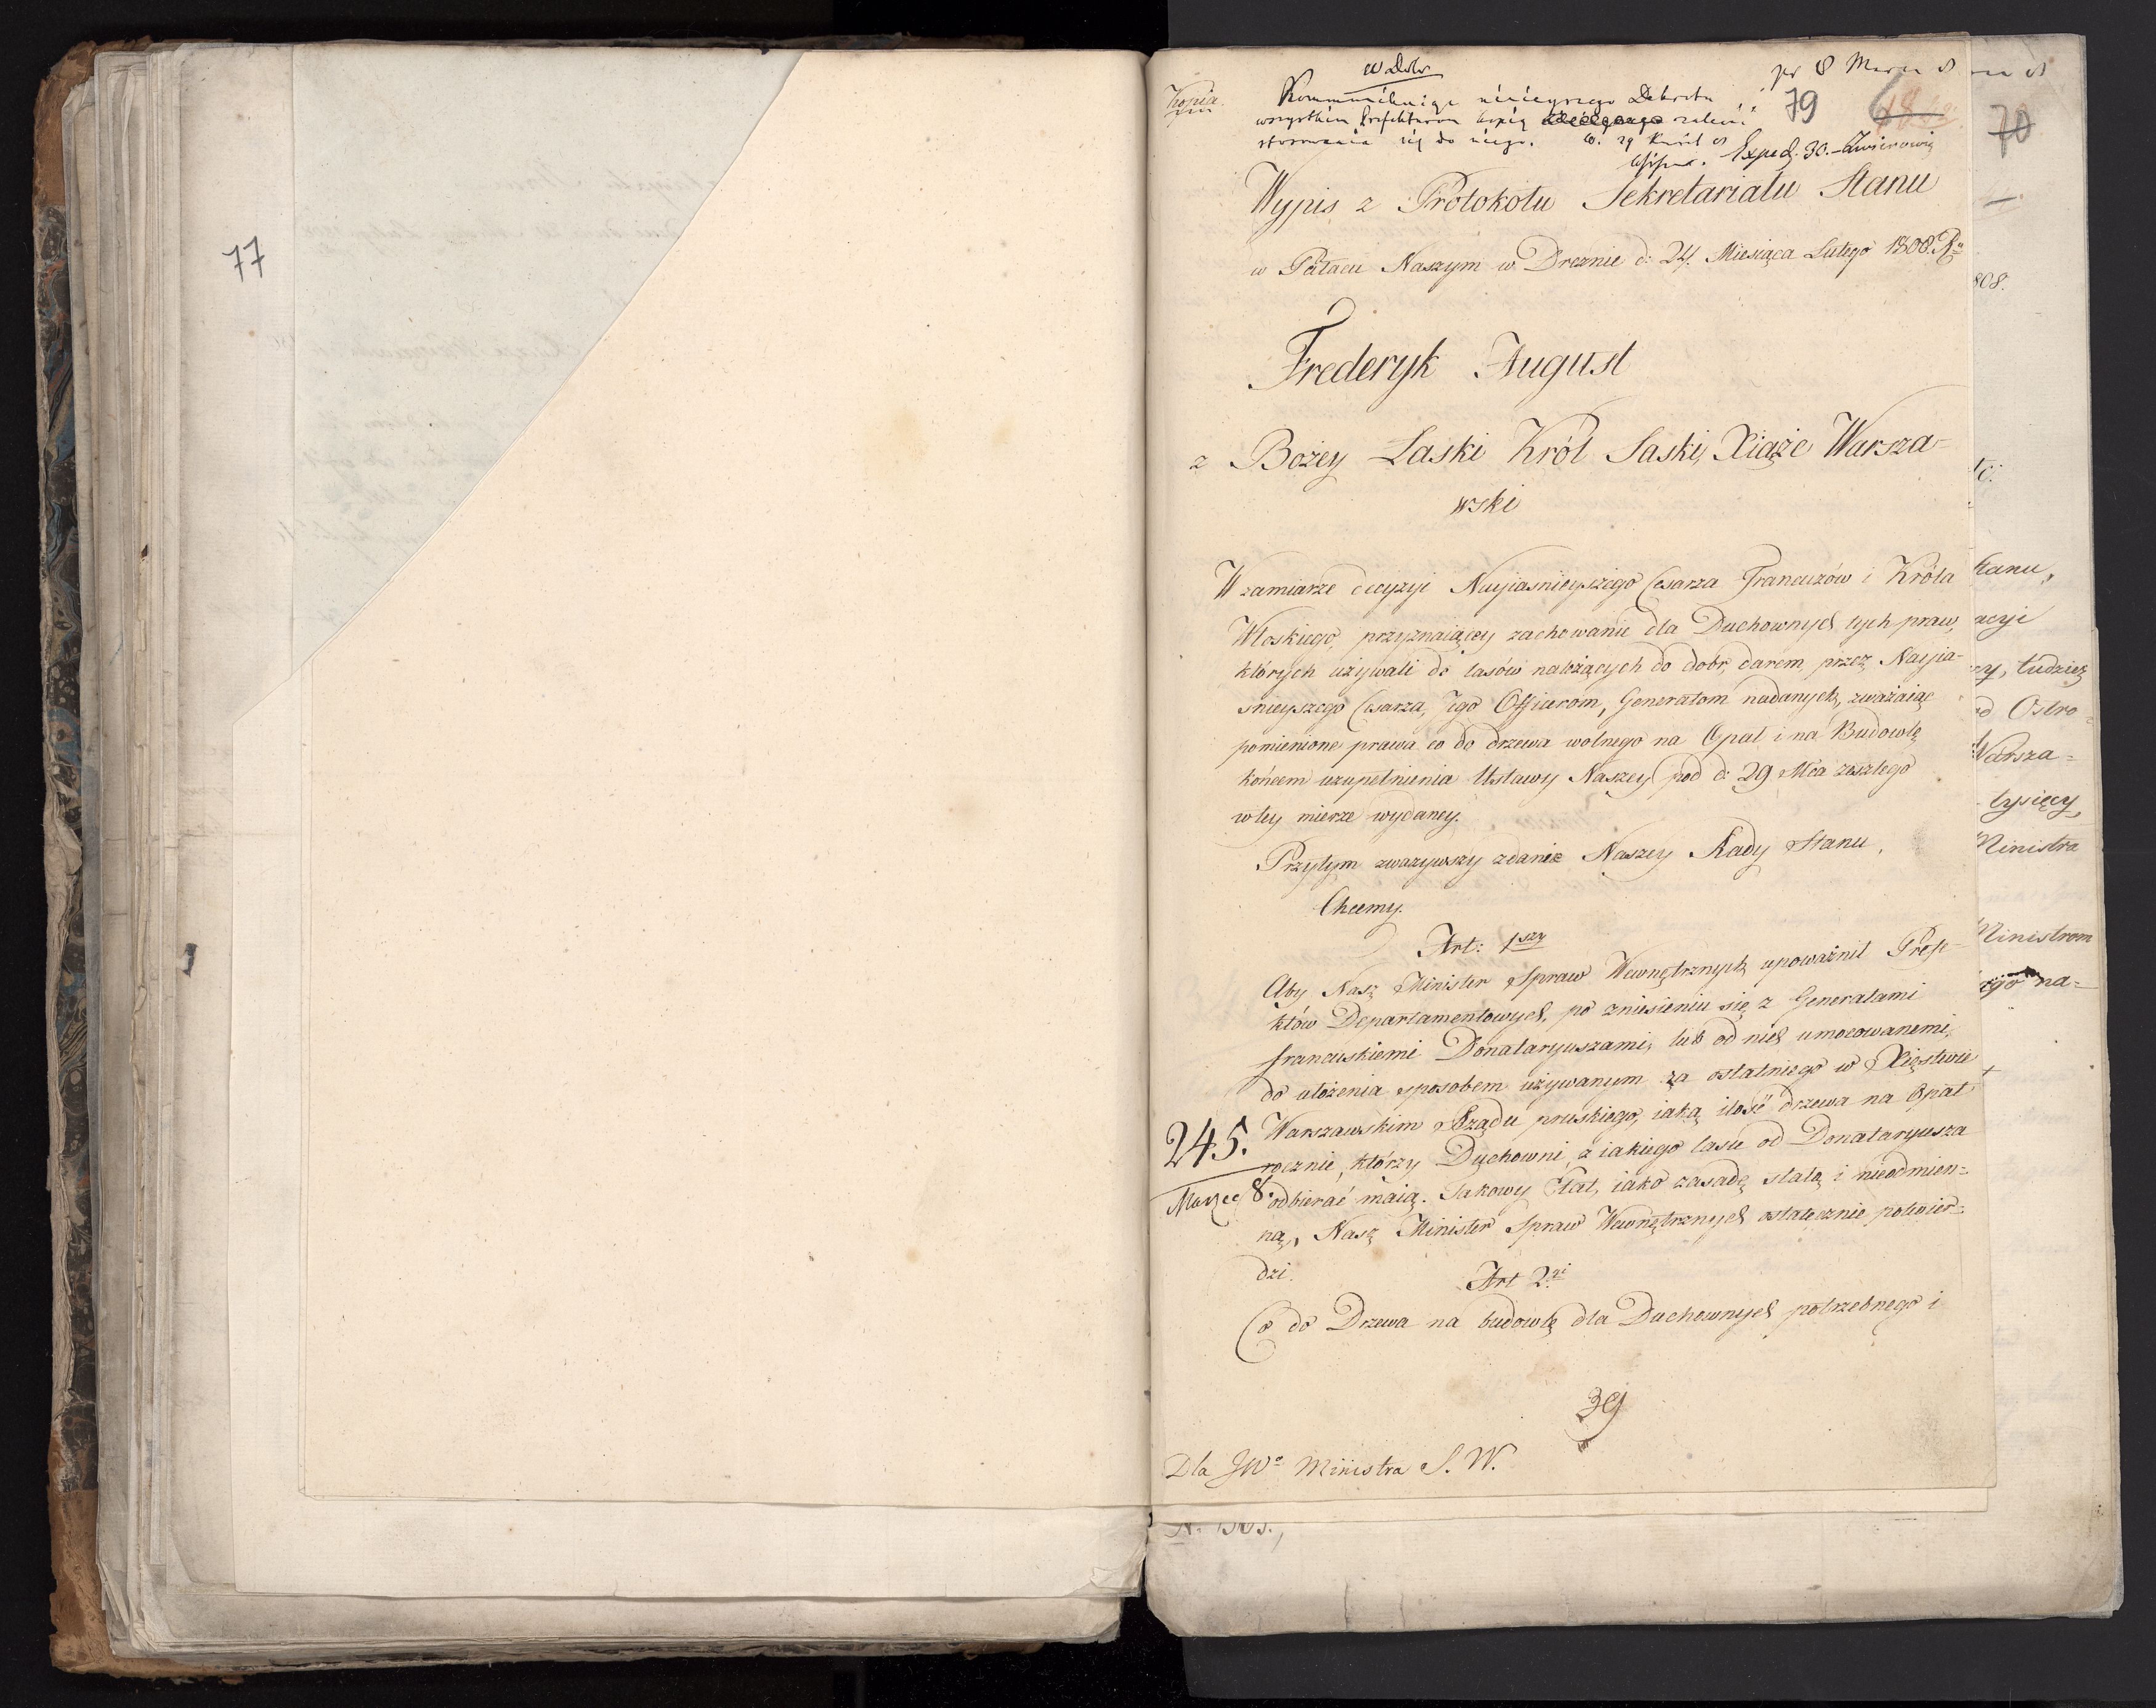 77
Kopia.
pr 8 Marca
79
70
wszystkim Prefekturom kopię
stosowania się do niego.
Exped. 30.
Wypis z Protokołu Sekretariatu Stanu
w Pałacu Naszym w Dreznie d: 24. Miesiąca Lutego 1808. Ru
Frederyk August
z Bożey Łaski Król Saski, Xiąże Warsza-
wski
W zamiarze decyzyi Nayiasnieyszego Cesarza Francuzów i Króla
Włoskiego, przyznaiącey zachowanie dla Duchownych tych praw,
których używali do lasów należących do dobr, darem przez Nayia-
snieyszego Cesarza, Jego Officerom, Generałom nadanych, zważaiąc
pomienione prawa co do drzewa wolnego na Opał i na Budowlę
końcem uzupełnienia Ustawy Naszey pod d: 29 Mca zeszłego
w tey mierze wydaney.
Przytym zważywszy zdanie Naszey Rady Stanu,
Chcemy.
Art: 1szy
Aby Nasz Minister Spraw Wewnętrznych upoważnił Prefe-
któw Departamentowych, po zniesieniu się z Generałami
francuskiemi Donataryuszami, lub od nich umocowanemi,
do ułożenia sposobem używanym za ostatniego w Xięstwie
Warszawskim Rządu pruskiego, iaką ilość drzewa na Opał
rocznie, którzy Duchowni, z iakiego lasu od Donataryusza
odbierać maią. Takowy Etat, iako zasadę stałą i nieodmien=
ną, Nasz Minister Spraw Wewnętrznych ostatecznie potwier=
dzi.
245.
Marzec 8.
Art 2gi
Co do Drzewa na budowlę dla Duchownych potrzebnego i
39
Dla JWo Ministra S. W.
808.
tc:
Stanu,
acyi
zy, tudzież
od Ostro=
Warsza=
tysięcy
Ministra
Ministrom
na=